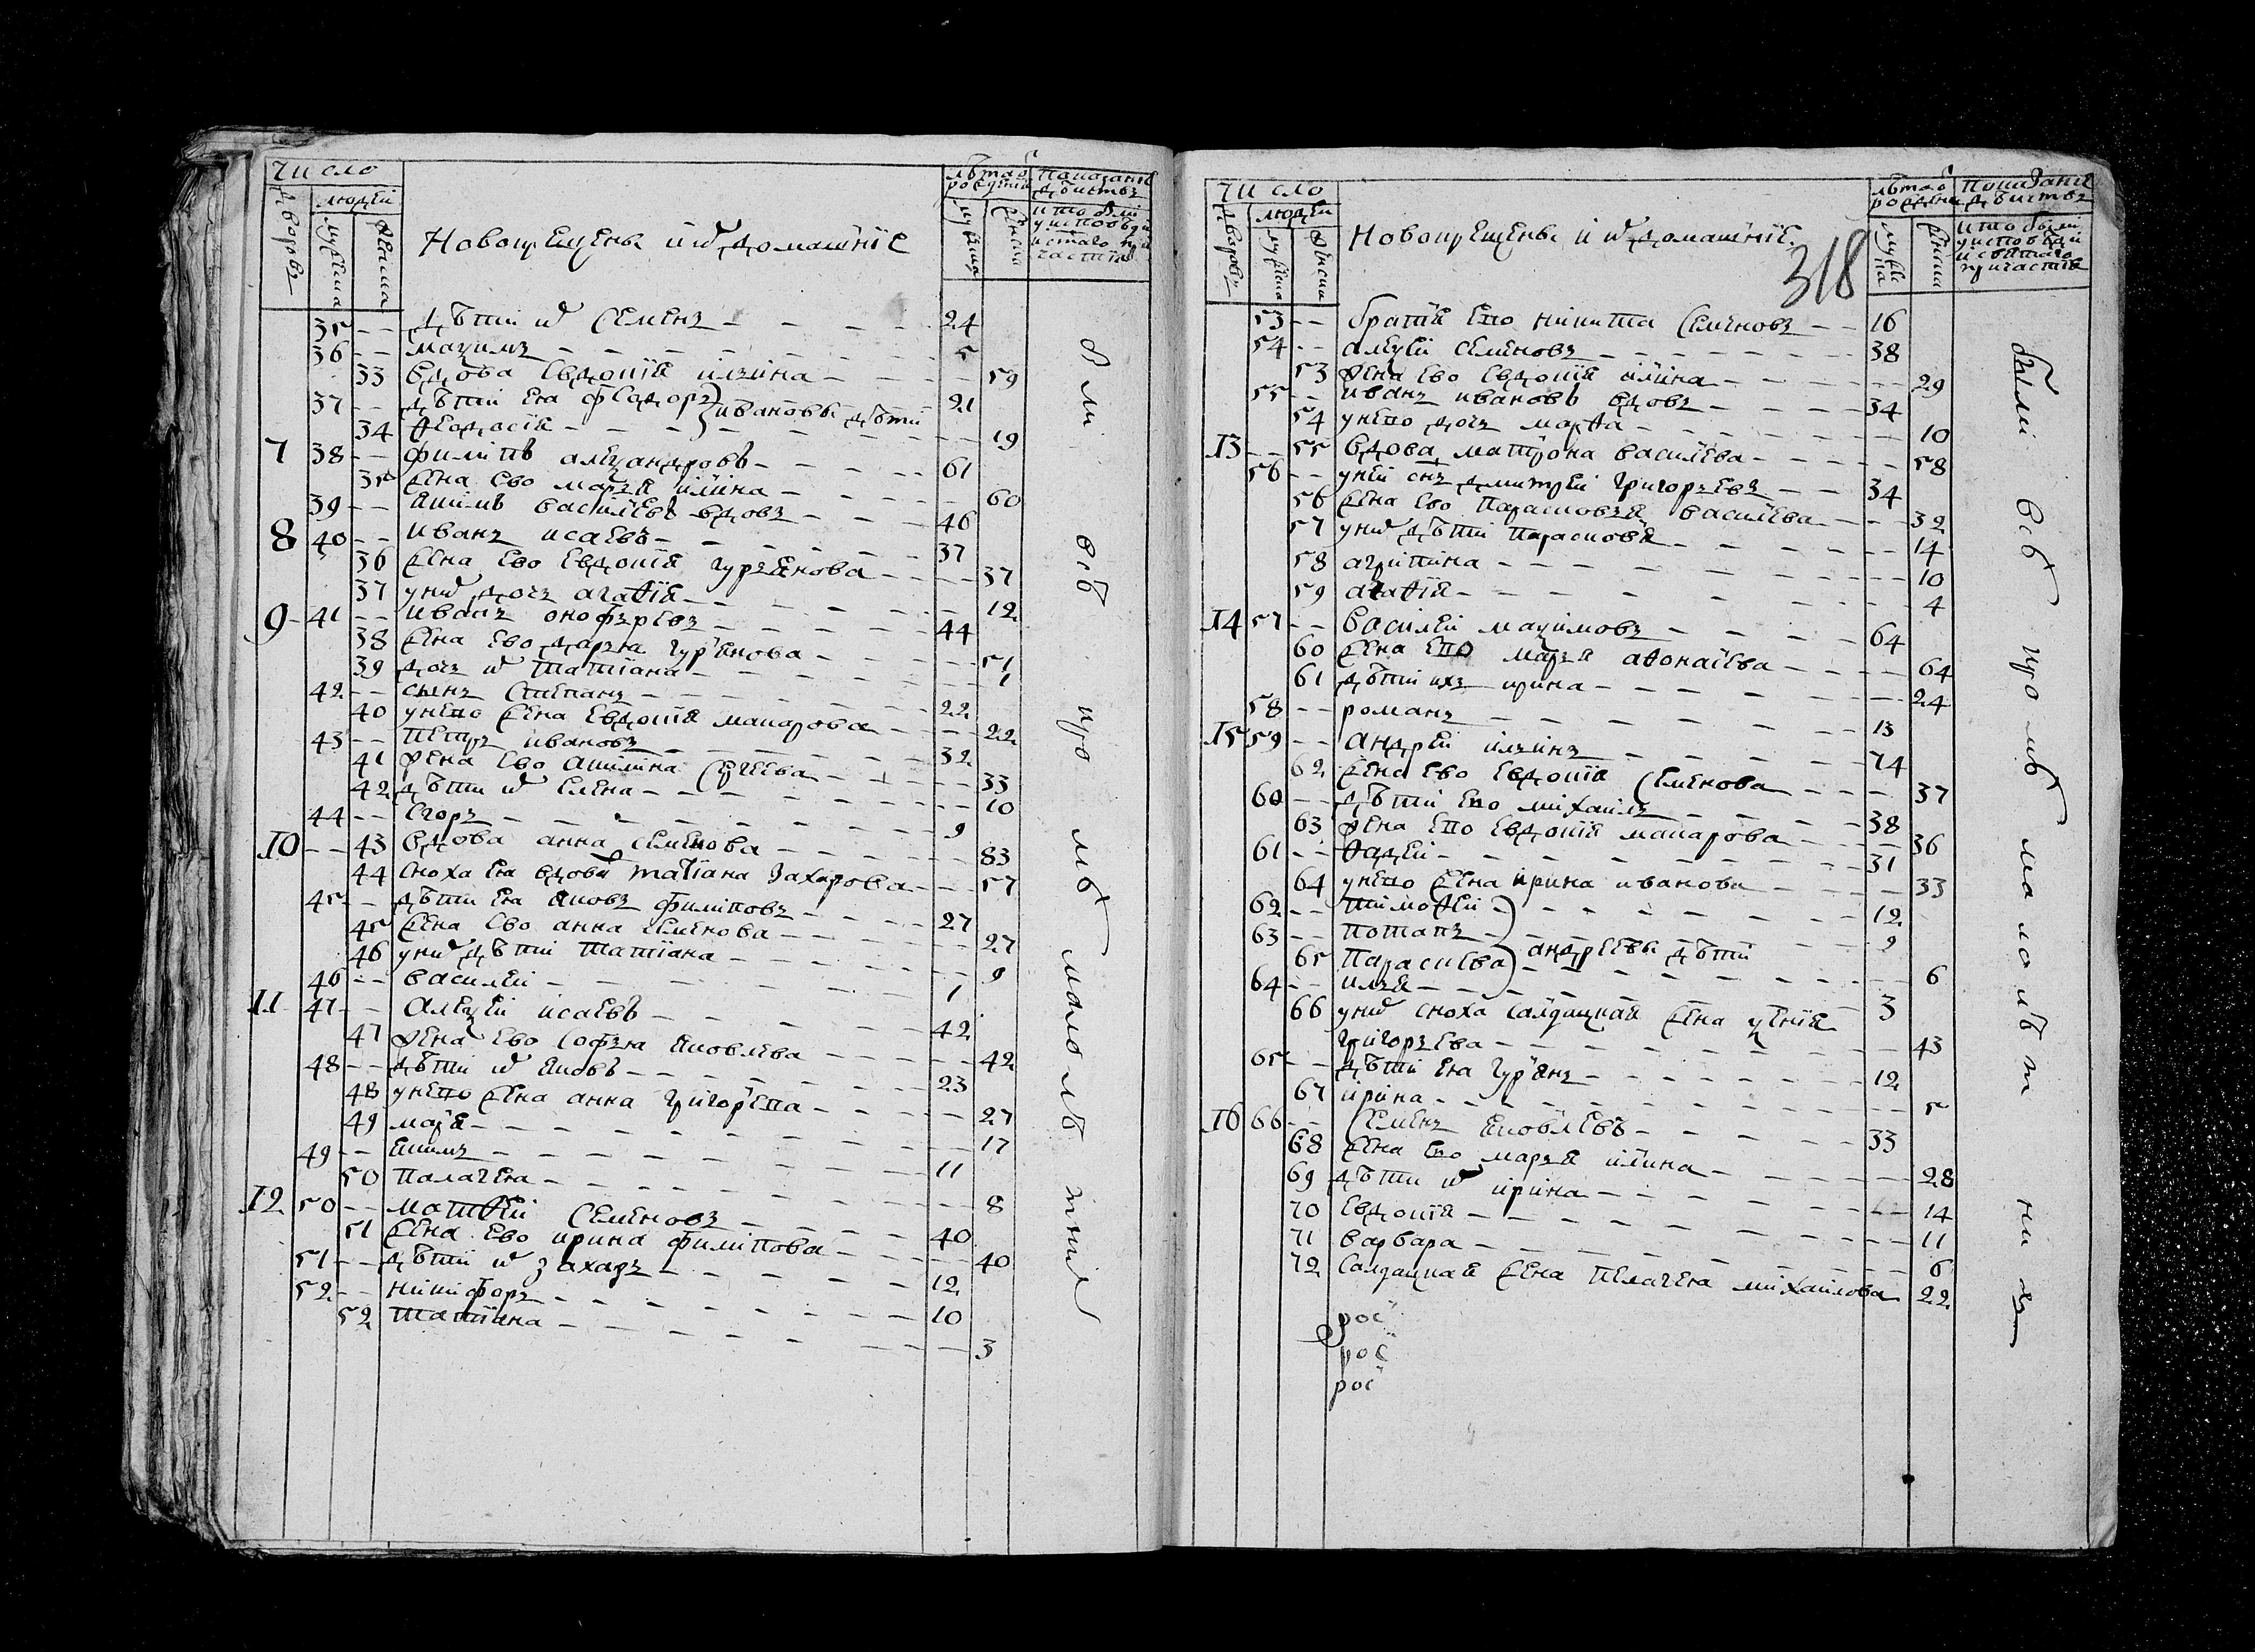 число
дворовъ
людей
мужеска
женска
Новокрещены и ихъ домашнїе
лѣта от рождения
мужеска
женска
показание дѣйствъ
кто былъ у исповѣди и с~таго причастия
35 -- дѣти их Семенъ -- 24
36 -- маѯимъ -- 5
33 вдова Евдокїя илзина -- 59
37 -- дѣти ея феадоръ } ивановы дѣти 21
34 Ѳеодосїя -- 19
7 38 -- филипъ алеѯандровъ -- 61
35 жена ево марья илїина -- 60
39 -- Якимъ василїевъ вдовъ -- 46
8 40 -- иванъ исаевъ -- 37
36 жена ево Евдокїя гурьянова -- 37
37 у них дочь агаѲїя -- 12
9 41 -- иванъ онофърїевъ -- 44
38 жена ево дарья гурьянова -- 51
39 дочь их татїана -- 1
42 -- сынъ степанъ -- 22
40 у нево жена Евдокїя макарова -- 22
43 -- петръ ивановъ -- 32
41 жена ево акилина сергеева -- 33
42 дѣти их Елена -- 10
44 -- Егоръ -- 9
10 -- 43 вдова анна семенова -- 83
44 сноха ея вдова татїана захарова -- 57
45 -- дѣти ея яковъ филиповъ -- 27
45 жена ево анна семенова -- 27
46 у них дѣти татїана -- 9
46 -- василей -- 1
11 47 -- алеѯей исаевъ -- 42
47 жена ево софья яковлева -- 42
48 -- дѣти их яковъ -- 23
48 у нево жена анна григорева -- 27
49 марїя -- 17
49 -- якимъ -- 11
50 палагея -- 8
12 50 -- матѲей семеновъ -- 40
51 жена ево ирина филипова -- 40
51 -- дѣти их захаръ -- 12
52 -- никифоръ -- 10
52 татїана -- 3
всѣ кромѣ малолѣтних
число
дворовъ
людей
мужеска
женска
Новокрещены и их домашнїе
318
лѣта от рождения
мужеска
женска
показание дѣйствъ
кто были у исповѣди и святаго причастїя
53 -- братїя ево никита семеновъ -- 16
54 -- алеѯей семеновъ -- 38
53 жена ево Евдокїя илїина -- 29
55 -- иванъ ивановъ вдовъ -- 34
54 у нево дочь марѲа -- 10
13 -- 55 вдова матрона василїева -- 58
56 -- у ней снъ дмитрей григорьевъ -- 34
56 жена ево парасковья василїева -- 32
57 у них дѣти парасковя -- 14
58 агрипина -- 10
59 агаѲїя -- 4
14 57 -- василей маѯимовъ -- 64
60 жена ево марья аѲонаїева -- 64
61 дѣти ихъ ирина -- 24
58 -- романъ -- 13
15 59 -- андрей ильинъ -- 74
62 жена ево Евдокїя семенова -- 37
60 -- дѣти ево михаилъ -- 38
63 жена ево Евдокїя макарова -- 36
61 -- Ѳадей -- 31
64 у нево жена ирина иванова -- 33
62 -- тимоѲей -- 12
63 -- потапъ -- 9
65 парасковa } андреевы дѣти 6
64 -- илья -- 3
66 у них сноха салдацкая жена ѯенїя
григорьева -- 43
65 -- дѣти ея гурьянъ -- 12
67 ирина -- 5
16 66 -- семенъ яковлевъ -- 33
68 жена ево марья илїина -- 28
69 дѣти их ирина -- 14
70 Евдокїя -- 11
71 варвара -- 6
72 салдацкая жена пелагея михаилова 22
рос
рос
рос
были всѣ кромѣ малолѣтнихъ